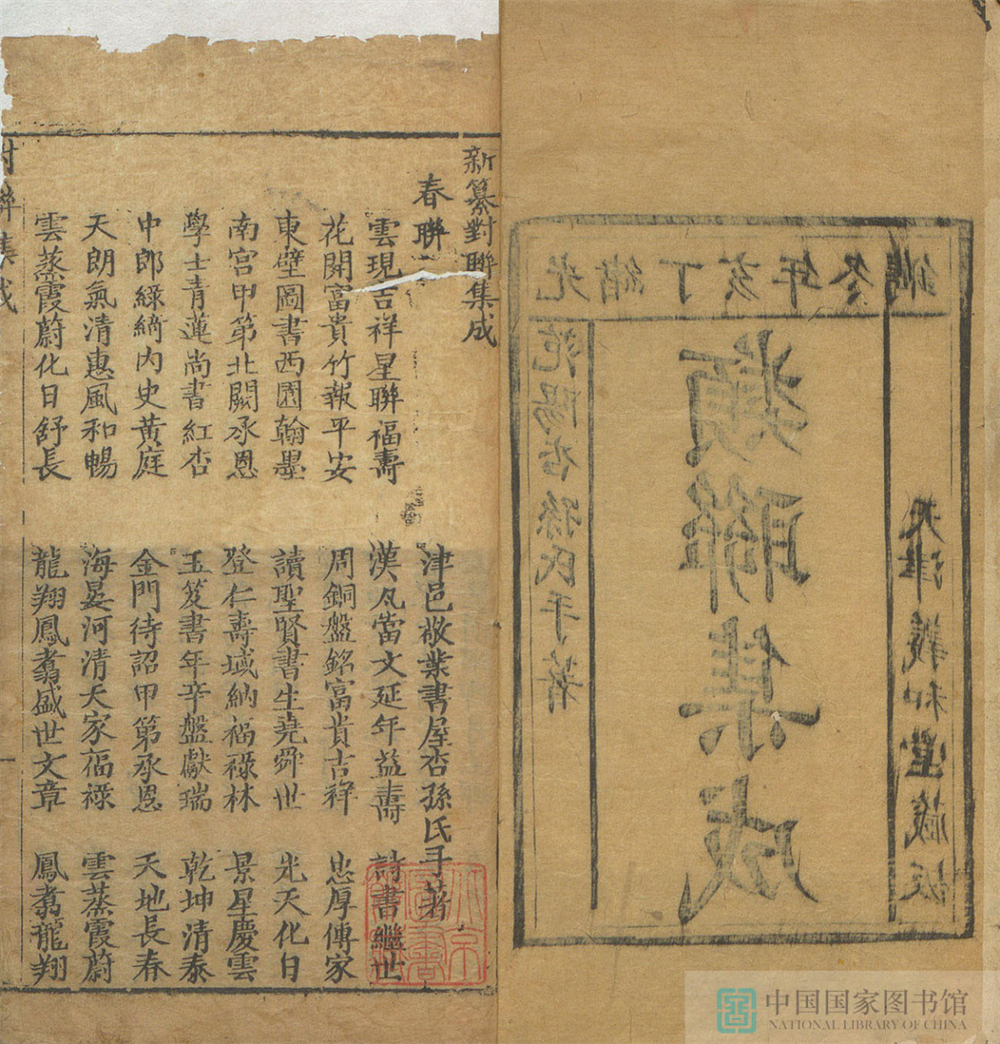 光緒丁亥年冬鐫
范陽杏孫氏手著
類聯集成
天津義和堂藏板
新纂對聯集成
春聯 津邑敬業書屋杏孫氏手著
雲現吉祥星聯福壽 漢瓦當文延年益壽 詩書繼世
花開富貴竹報平安 周銅盤銘富貴吉祥 忠厚傳家
東壁圖書西園翰墨 讀聖賢書生堯舜世 光天化日
南宮甲第北闕承恩 登仁壽域納福祿林 景星慶雲
學士青蓮尚書紅杏 玉笈書年辛盤獻瑞 乾坤清泰
中郎綠綺內史黃庭 金門待詔甲第承恩 天地長春
天朗氣清惠風和暢 海晏河清天家福祿 雲蒸霞蔚
雲蒸霞蔚化日舒長 龍翔鳳翥盛世文章 鳳翥龍翔
對聯集成
中国国家图书馆
NATIONAL LIBRARY OF CHINA